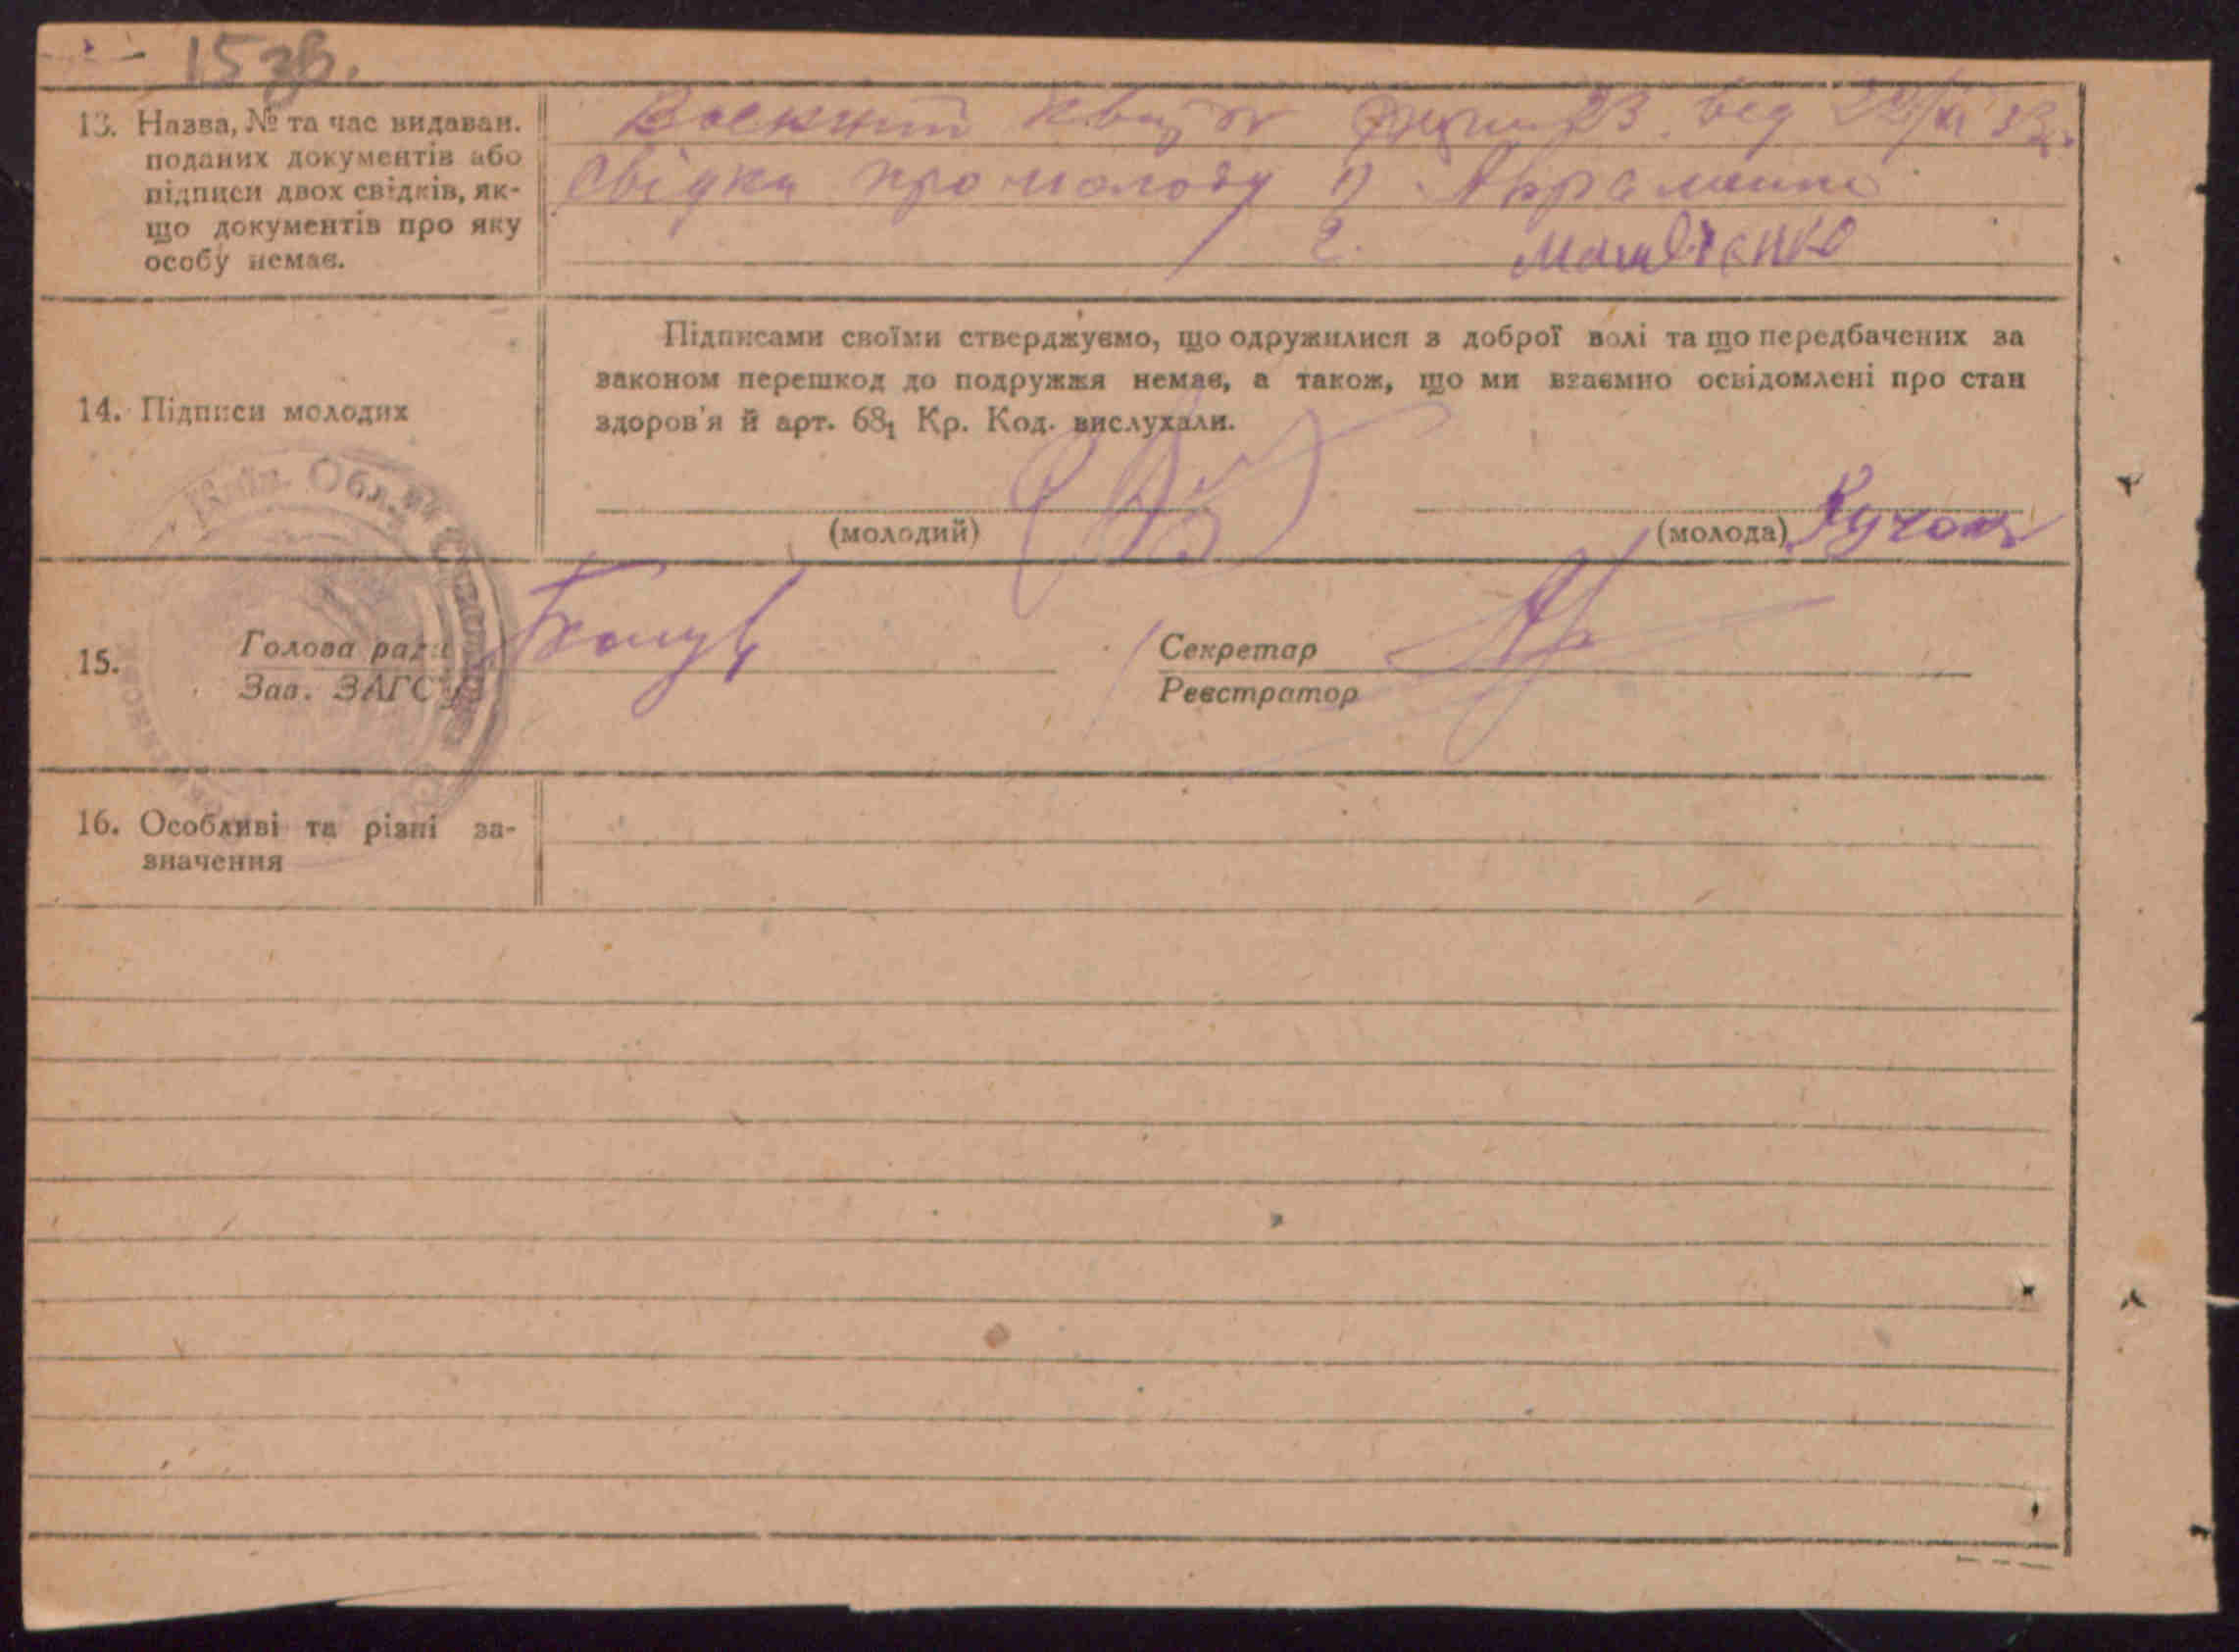 15 зв.
13. Назва, № та час видаван.
поданих документів або
підписи двох свідків, як-
що документів про яку
особу немає.
Воєнний квиток 23 від
Свідки про молоду 1)
2. Матвієнко
14. Підписи молодих
Підписами своїми стверджуємо, що одружилися з доброї волі та що передбачених за
законом перешкод до подружжя немає, а також, що ми взаємно освідомлені про стан
здоров'я й арт. 68₁ Кр. Код. вислухали.
(молодий)
(молода)
Київ. Обл.
15.
Голова ради
Зав. ЗАГС
Секретар
Реєстратор
16. Особливі та різні за-
значення